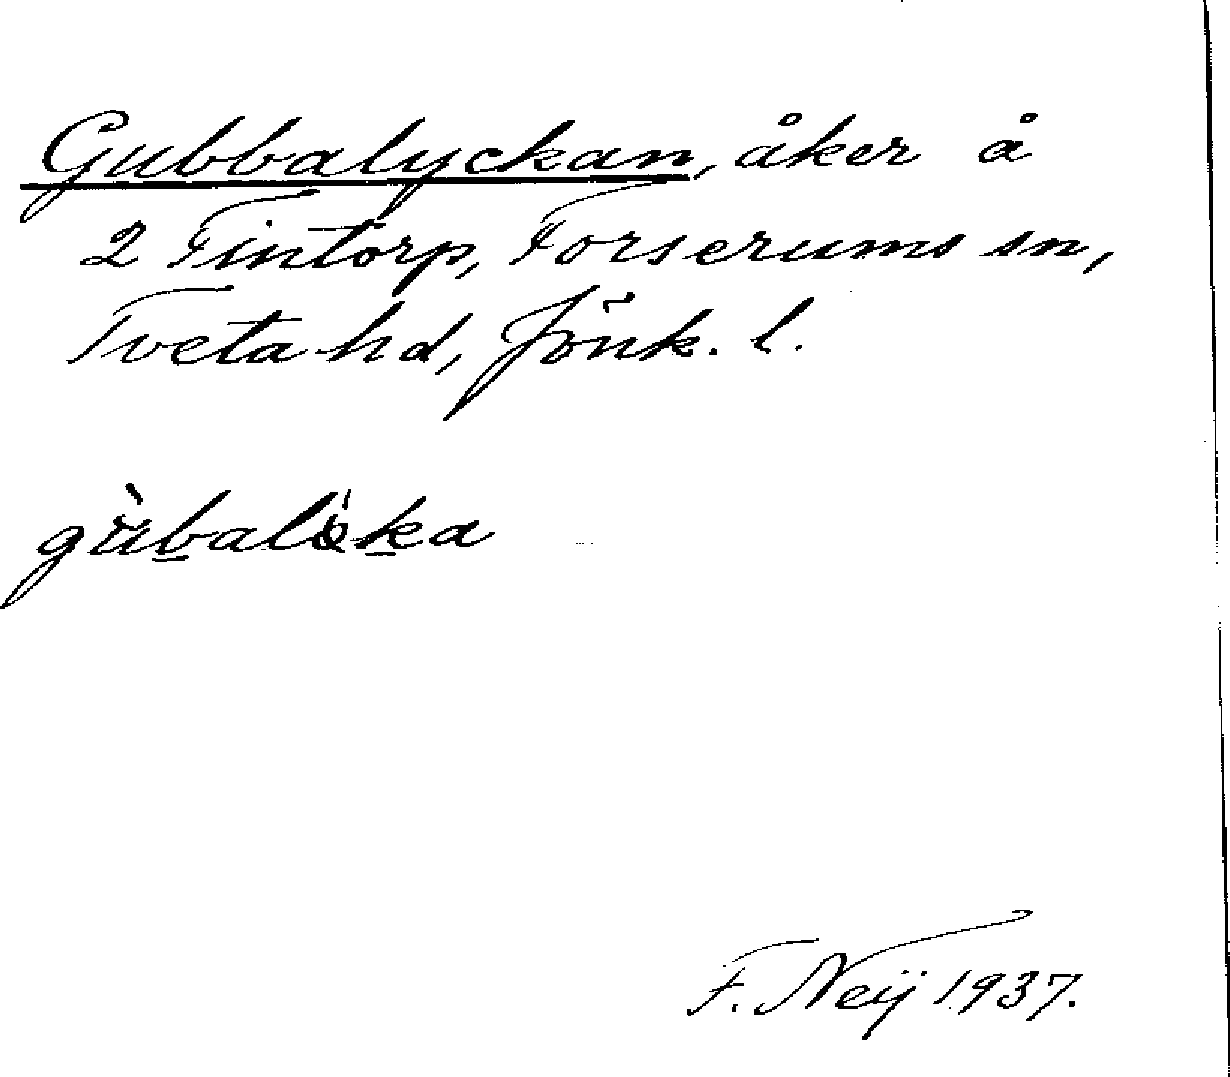 Gubbalyckan, åker å
2 Tintorp, Forserums sn,
Tveta hd, Jönk. l.
gùbalö́ka
F. Neij 1937.